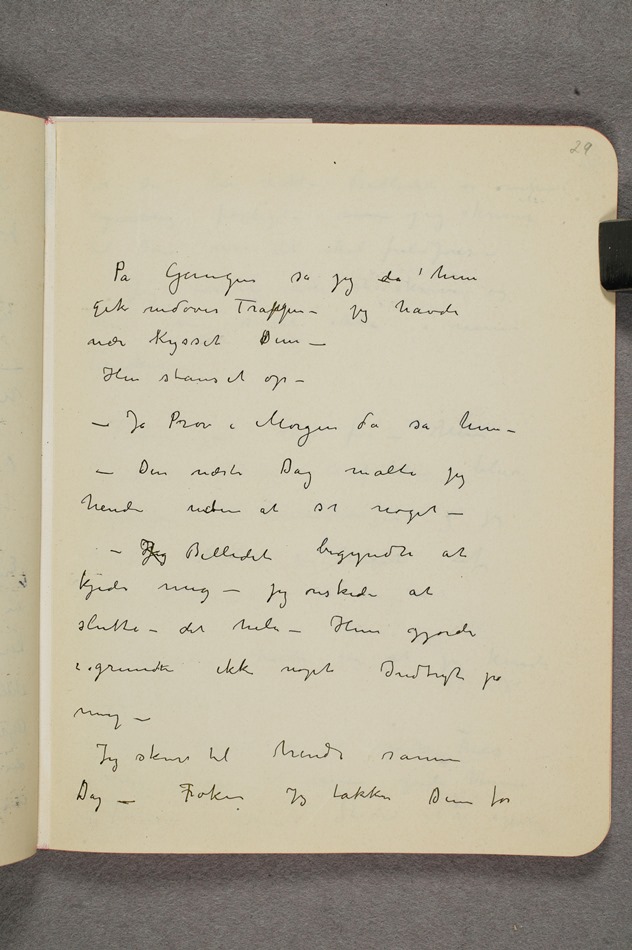 29
På Gangen sa jeg da hun
gik nedover Trappen – jeg havde
nær kysset Dem –
Hun stanset op –
– Ja Prøv i Morgen da sa hun –
– Den næste Dag malte jeg
hende uden at si noget –
– Jeg Billedet begyndte at
kjede mig – jeg ønskede at
slutte – det hele – Hun gjorde
i grunden ikke noget Indtryk på
mig –
Jeg skrev til hende samme
Dag – Frøken Jeg takker Dem for